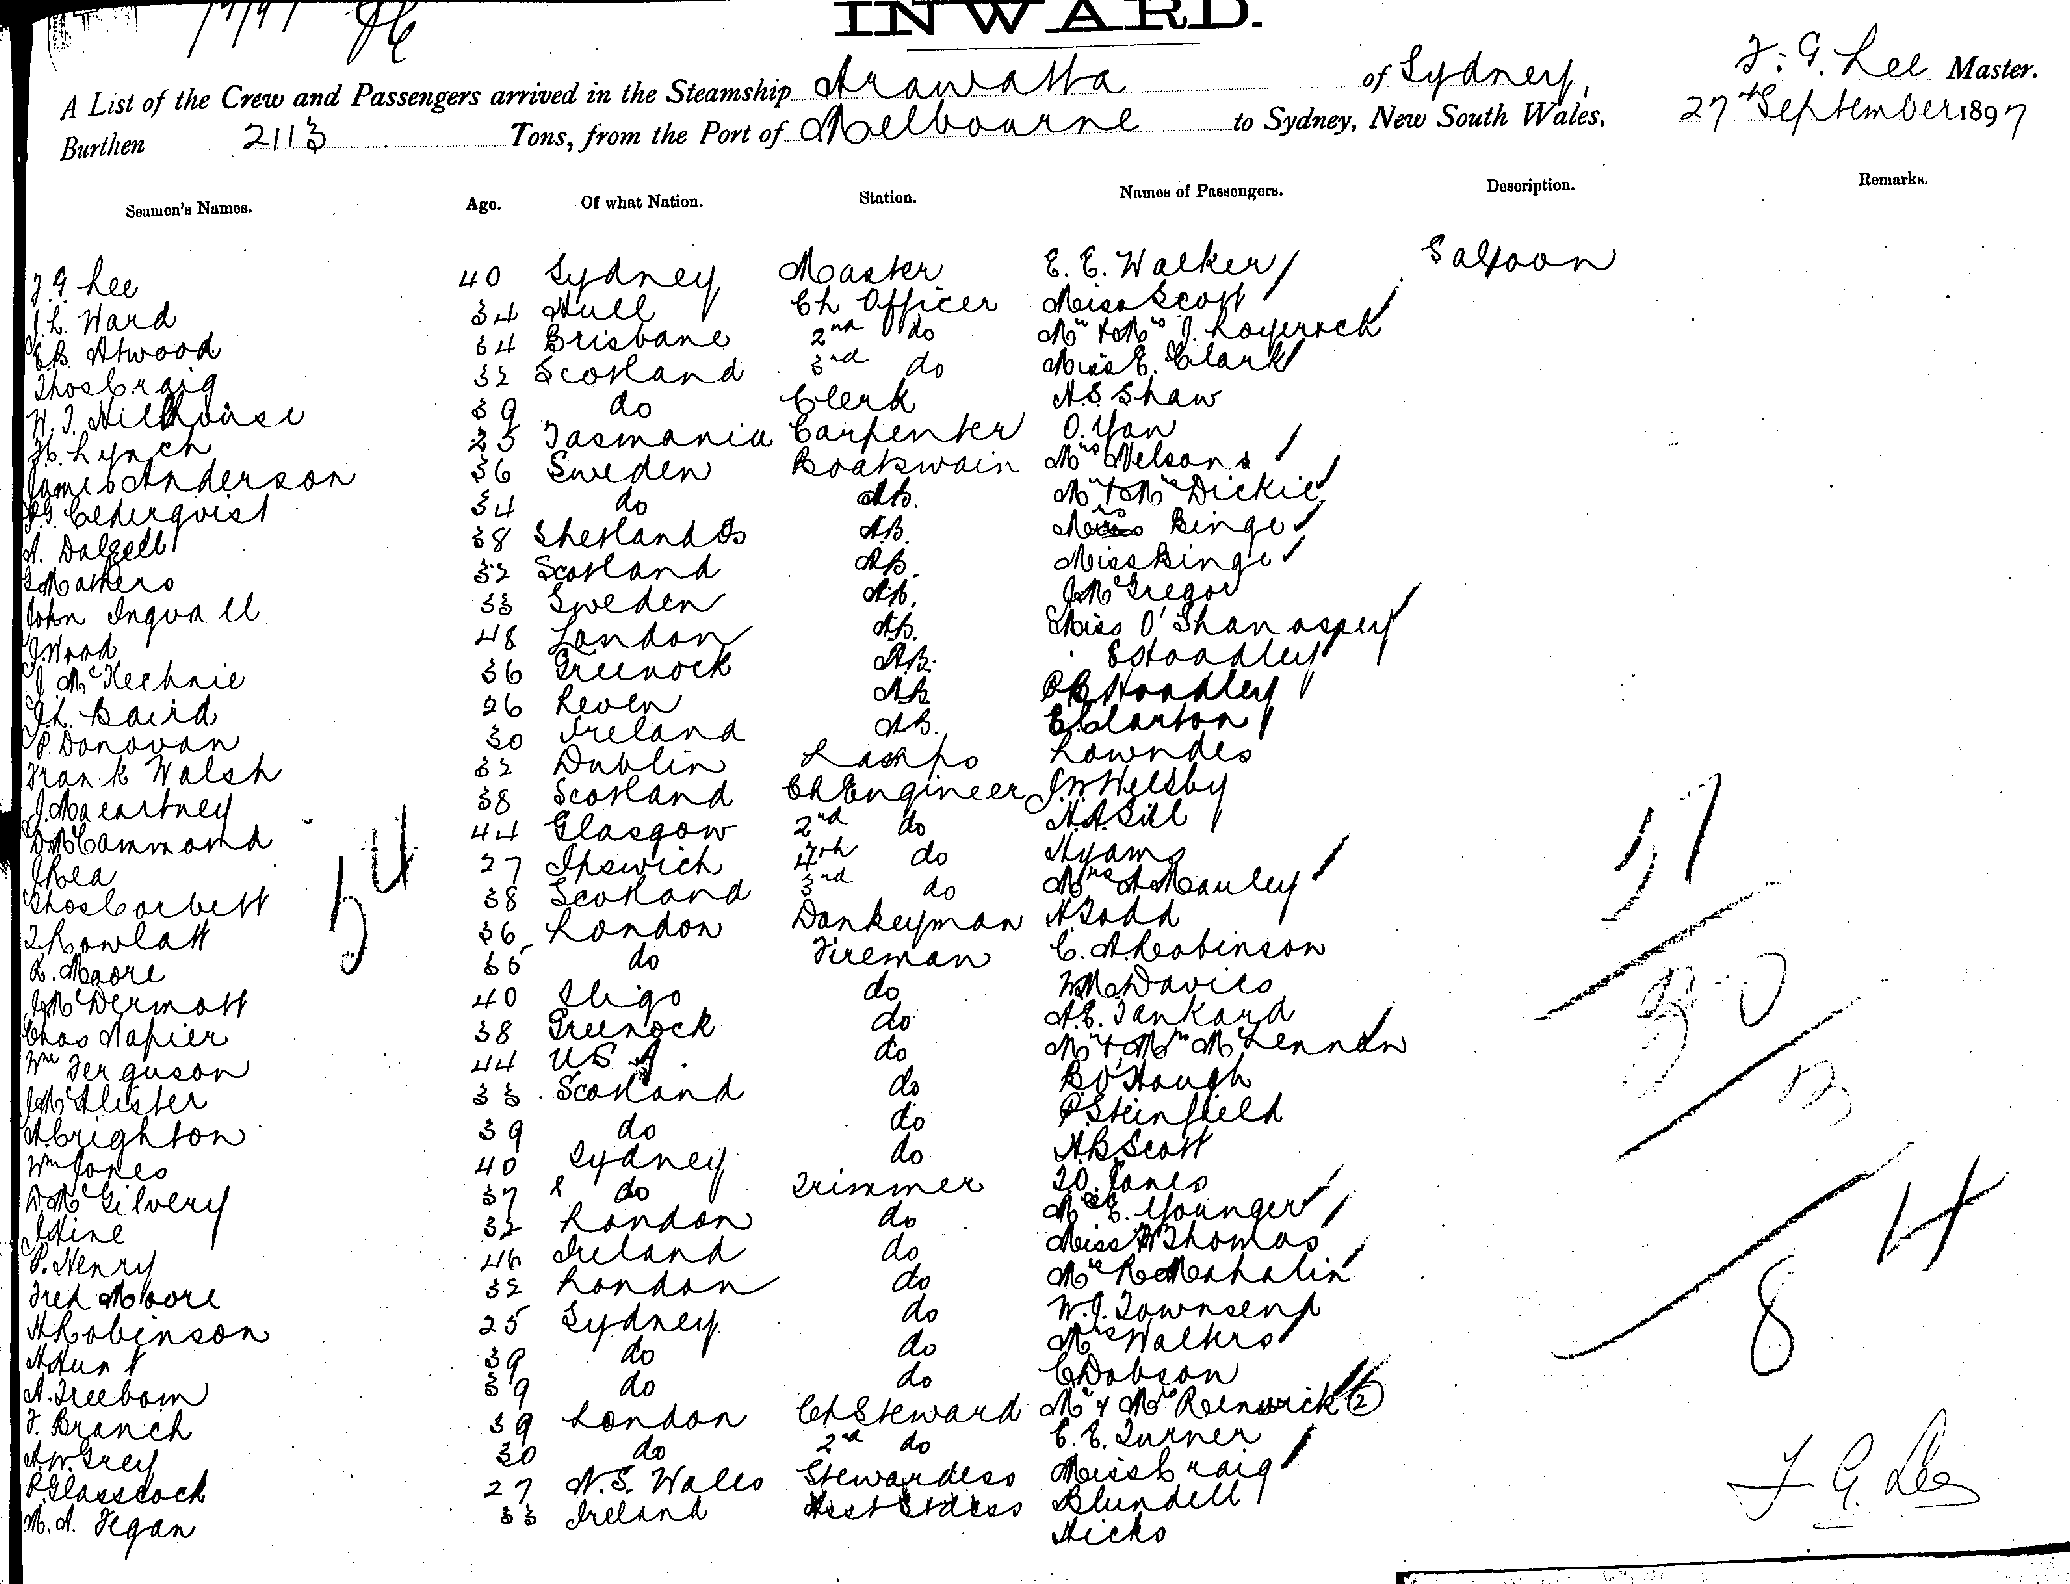 INWARD.
A List of the Crew and Passengers arrived in the Steamship Arawatta of Sydney, F. G. Lee Master.
Burthen 2113 Tons, from the Port of Melbourne to Sydney, New South Wales, 27th September 1897
Seamen's Names. Age. Of what Nation. Station. Names of Passengers. Description. Remarks.
F. G. Lee 40 Sydney Master E. E. Walker Saloon
J. L. Ward 34 Hull Ch Officer Miss Scott
E B. Atwood 34 Brisbane 2nd do Mr & Mrs J.
Thos Craig 32 Scotland 3rd do Miss E. Clark
W. J. Hillhouse 39 do Clerk A S. Shaw
H. Lynch 25 Tasmania Carpenter O. Yan
James Anderson 36 Sweden Boatswain Mrs Nelson
Cederqvist 34 do AB. Mr & Mrs Dickie
A. Dalzell 38 Shetland Is AB. Mrs Binge
Mathers 32 Scotland AB. Miss Binge
John Ingvall 33 Sweden AB. J McGregor
J Wood 48 London AB. Miss O'Shanaspey
J McKechnie 36 Greenock AB. E Hoadley
J. L. Baird 26 Leven AB Hoadley
P. Donovan 30 Ireland AB. E Clarton
Frank Walsh 32 Dublin Lamps Lowndes
J. Macartney 38 Scotland Ch Engineer J. W Helsby
D McCammond 44 Glasgow 2nd do A. A. Gill
J Rea 27 Ipswich 4th do Hyams
Thos Corbett 38 Scotland 3rd do Mrs A Manley
T Rowlatt 36 London Donkeyman H Todd
Moore 35 do Fireman C. A. Robinson
J McDermott 40 Sligo do W M Davies
Chas Napier 38 Greenock do A. E. Tankard
Wm Ferguson 44 U S A. do Mr & Mrs McLennan
J McAlister 33 Scotland do B O'Hough
A Crighton 39 do do P. Steinfield
Wm Jones 40 Sydney do A B Scott
D McGilvery 37 do Trimmer Jones
J Hine 32 London do E. Younger
P. Henry 46 Ireland do Miss Thomas
Fred Moore 32 London do R
A Robinson 25 Sydney do W. J. Townsend
A Hunt 39 do do Mrs Walters
A. Freeborn 39 do do C Dobson
F. Branch 39 London Ch Steward Mr & Mrs Renwick 2
A. W. Grey 30 do 2nd do E. E. Turner
P. Glasscock 27 N. S. Wales Stewardess Miss Craig
M. A. Fegan 33 Ireland Asst Stdess Blundell
Hicks
54
37
30
3
84
F. G. Lee